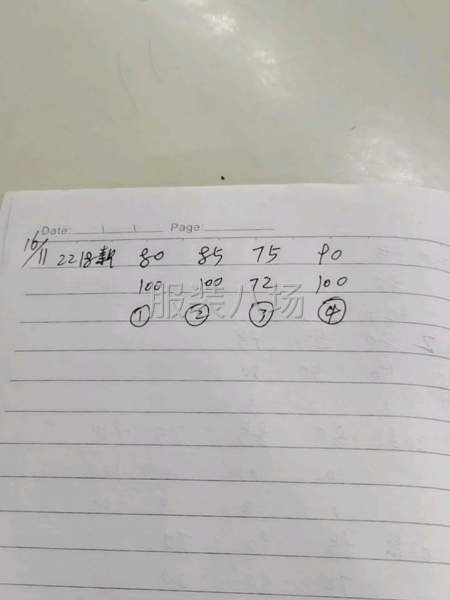 Date: Page:
16/11 2218款 80 85 75 90
100 100 72 100
① ② ③ ④
服装八场